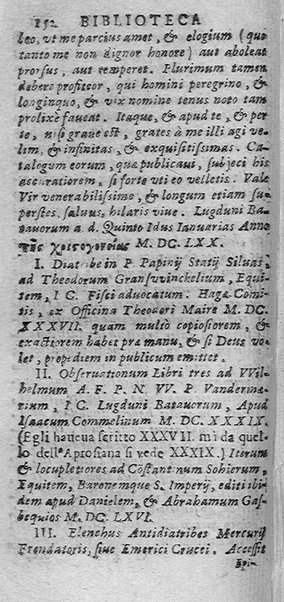 152 BIBLIOTECA
leo, vt me parcius amet, & elogium (quo
tanto me non dignor honore) aut aboleat
prorsus, aut temperet. Plurimum tamen
debere profiteor, qui homini peregrino, &
longinquo, & vix nomine tenus noto tam
prolixè faueat. Itaque, & apud te, & per
te, nisi graue est, grates à me illi agi ve-
lim, & infinitas, & exquisitissimas. Ca-
talogum eorum, quæ publicaui, subjeci his
accuratiorem, si forte vti eo velletis. Vale
Vir venerabilissime, & longum etiam su-
perstes, saluus, hilaris viue. Lugduni Ba-
tauorum a. d. Quinto Idus Ianuarias Anno
τῆς χριστογονείας M. DC. LXX.
I. Diatribe in P. Papinij Statij Siluas,
ad Theodorum Gransvvinckelium, Equi-
tem, I C. Fisci aduocatum. Hagæ Comi-
tis, ex Officina Theodori Maire M. DC.
XXXVII. quam multò copiosiorem, &
exactiorem habet præ manu, & si Deus vo-
let, propediem in publicum emittet.
II. Obseruationum Libri tres ad VVil-
helmum A. F. P. N. VV. P. Vanderme-
rium, I C. Lugduni Batauorum, Apud
Isaacum Commelinum M. DC. XXXIX.
(Egli haueua scritto XXXVII. mà da quel-
lo dell'Aprosiana si vede XXXIX.) Iterum
& locupletiores ad Costantinum Sohierum,
Equitem, Baronemque S. Imperij, editi ibi-
dem apud Danielem, & Abrahamum Gas-
bequios M. DC. LXVI.
III. Elenchus Antidiatribes Mercurij
Frondatoris, siue Emerici Crucci. Accessit